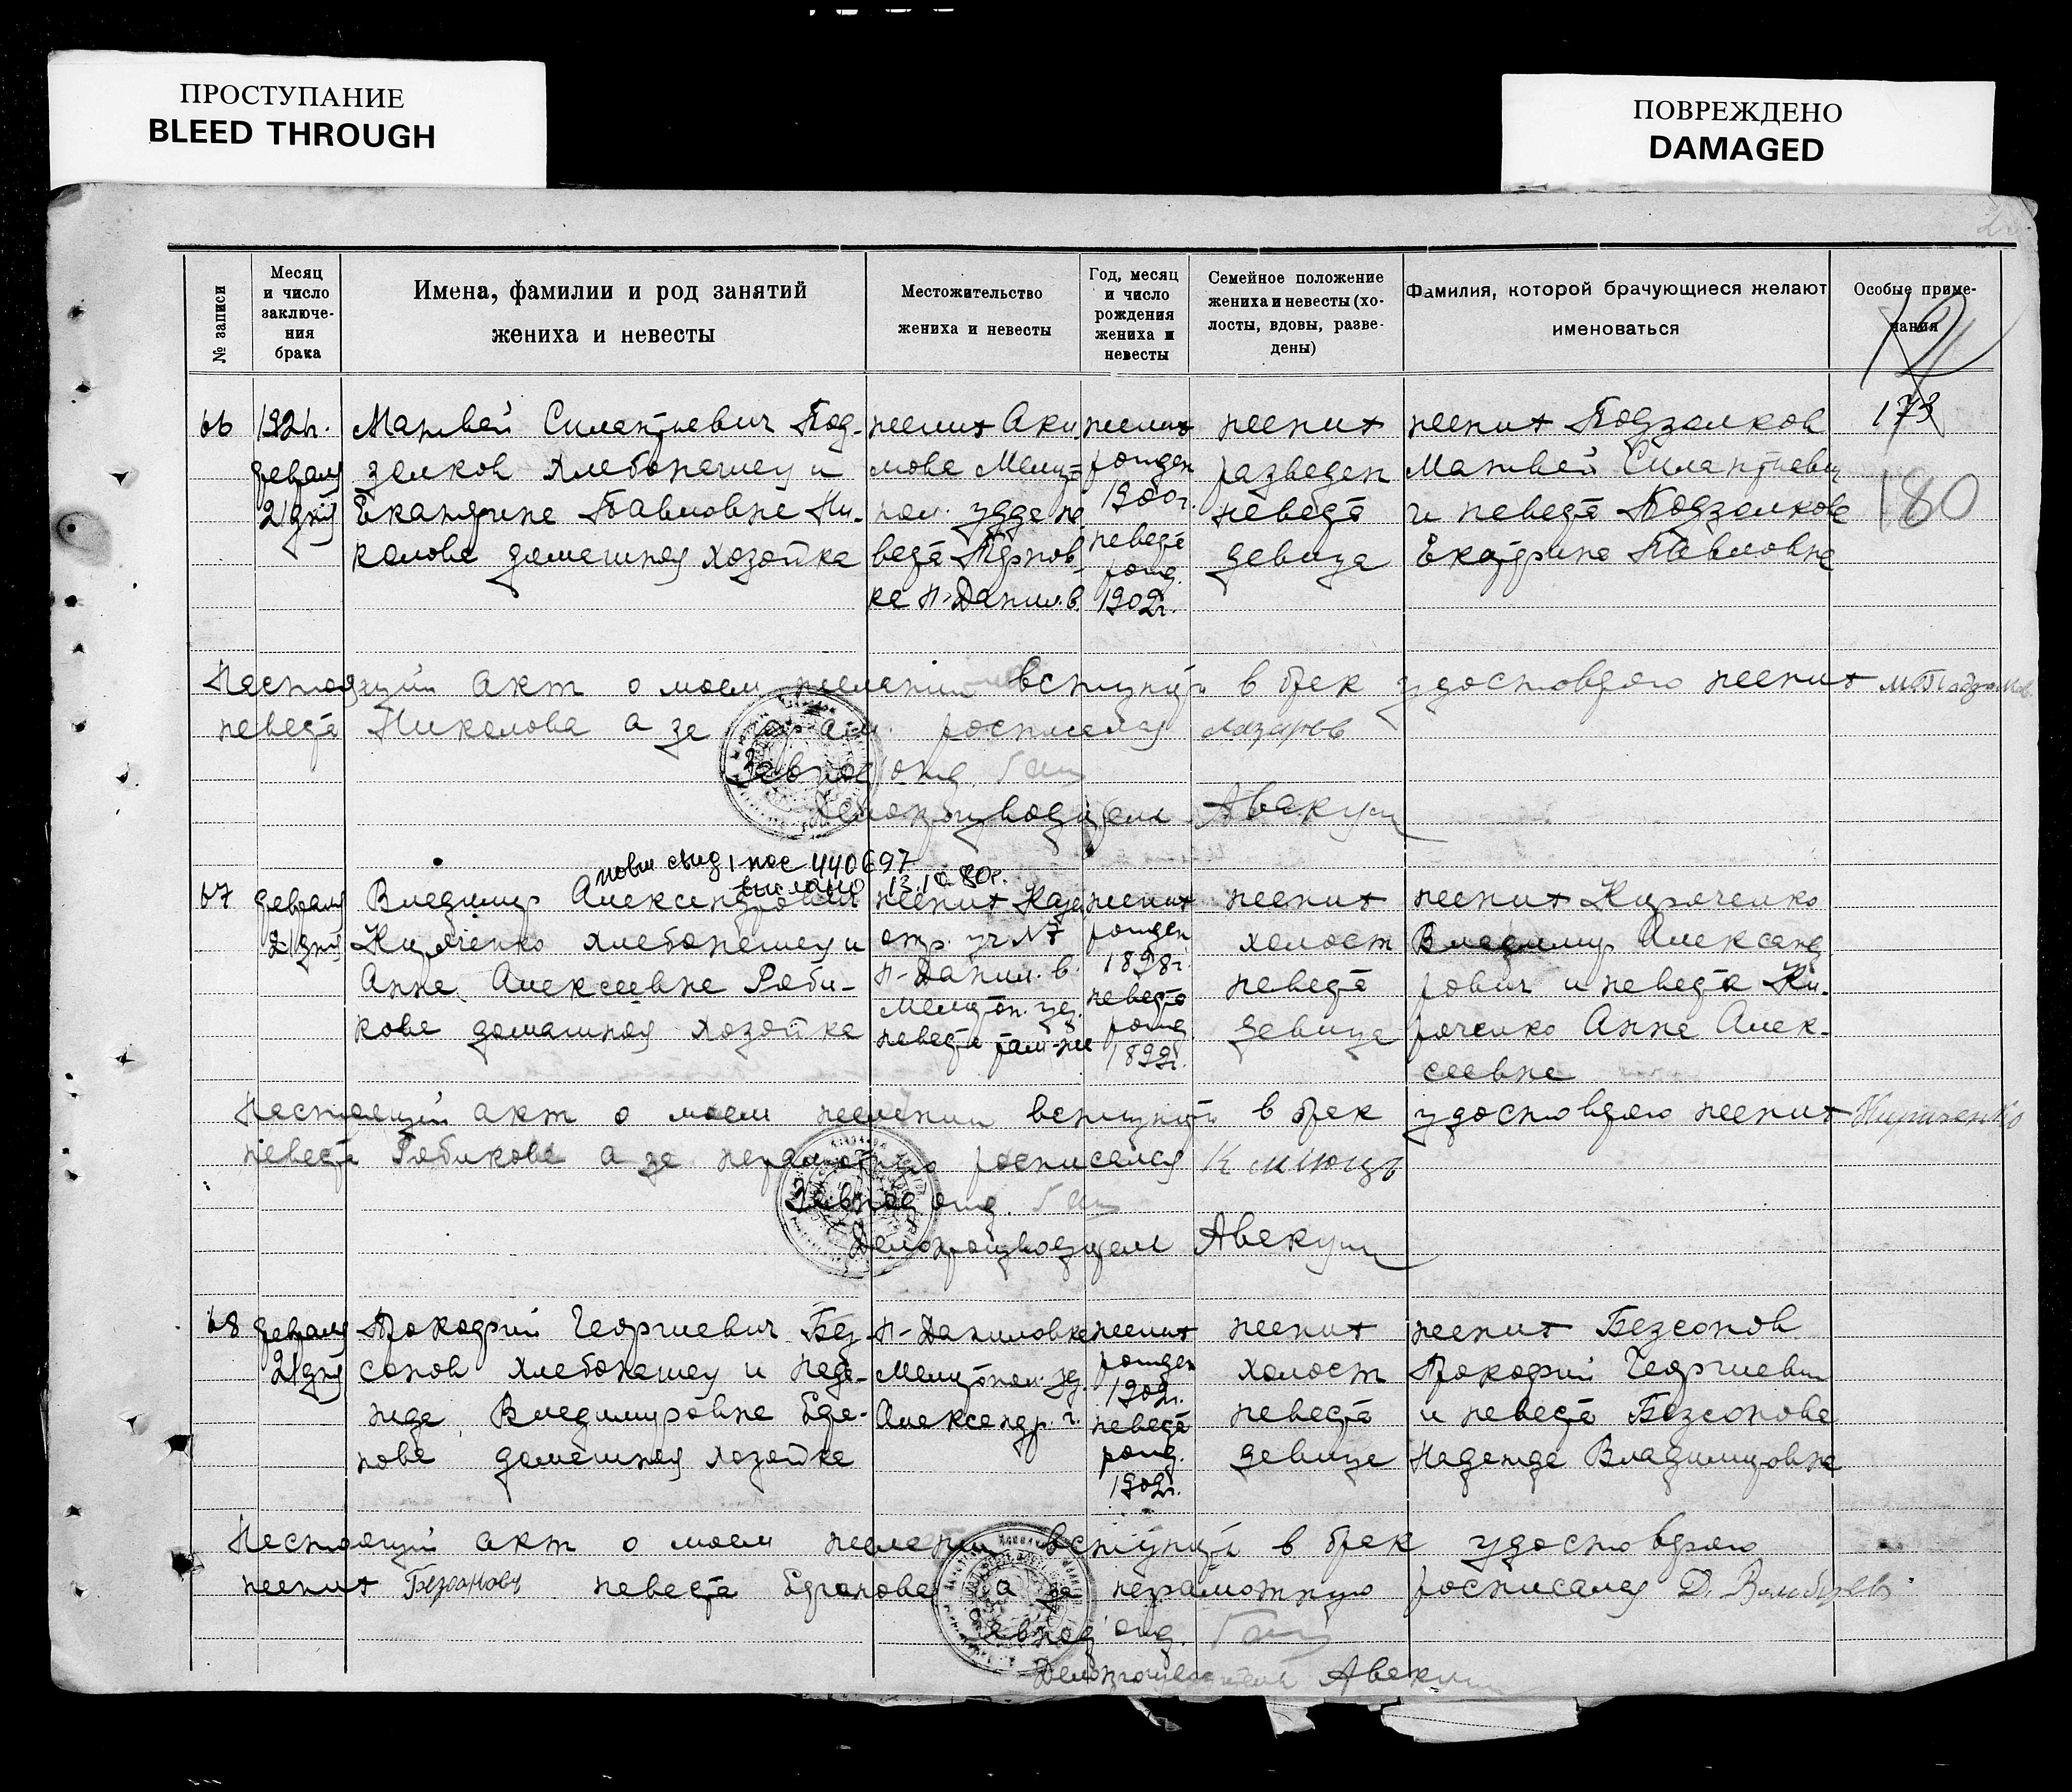 ПРОСТУПАНИЕ
BLEED THROUGH
ПОВРЕЖДЕНО
DAMAGED
№ записи
Месяц
и число
заключе-
ния
брака
Имена, фамилии и род занятий
жениха и невесты
Местожительство
жениха и невесты
Год, месяц
и число
рождения
жениха и
невесты
Семейное положение
жениха и невесты (хо-
лосты, вдовы, разве-
дены)
Фамилия, которой брачующиеся желают
именоваться
Особые приме-
чания
173
180
66
февраля
21 дня
Матвей Силантьевич Под-
залков хлебопашец и
Екатерина Павловна Ни-
колова домашняя хозяйка
жених Аки
мовка Мели-
поп. уезда не
веста Терпов
ка П-Данил. в.
жених
рожден
1900г.
невеста
рожд.
1902г.
жених
разведен
невеста
девица
жених Подзалков
Матвей Силантьевич
и невеста Подзалкова
Екатерина Павловна
Настоящий акт о моем желании вступить в брак удостоверяю жених
невеста Николова а за росписался Лазарев
Завпод отд.
Делопроизводитель Авакум
повт свид 440697
выслано 13.10.80г.
67
февраля
21 дня
Владимир Александрович
Кириченко хлебопашец и
Анна Алексеевна Ряби-
кова домашняя хозяйка
жених
отр. уч N7
П-Данил. в.
Мелитоп. уез.
невеста там-же
жених
рожден
1898г.
невеста
рожд
1899г.
жених
холост
невеста
девица
жених Кириченко
Владимир Александ
рович и невеста Ки-
риченко Анна Алек-
сеевна
Настоящий акт о моем желании вступить в брак удостоверяю жених Кириченко
невеста Рябикова а за неграмотную росписался
Завпод отд.
Делопроизводитель Авакум
68
февраля
21 дня
Прокофий Георгиевич Без-
сонов хлебопашец и Наде-
жда Владимировна Ера-
нова домашняя хозяйка
П-Даниловка
Мелитопол. уз.
Александр. г.
жених
рожден
1902г.
невеста
рожд.
1902г.
жених
холост
невеста
девица
жених Безсонов
Прокофий Георгиевич
и невеста Безсонова
Надежда Владимировна
Настоящий акт о моем желании вступить в брак удостоверяю
жених Безсоновъ невеста а за неграмотную росписался Д.
Завпод отд.
Делопроизводитель Авакум